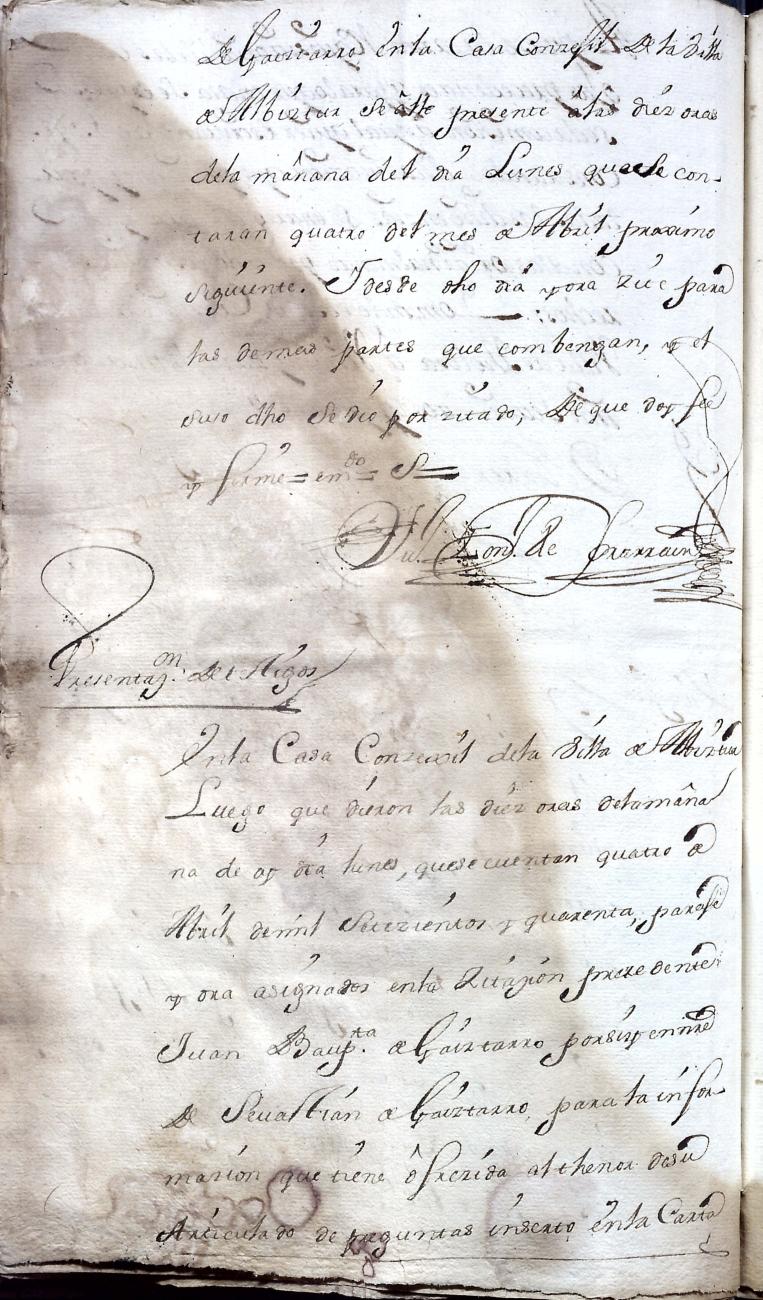 de Gaiztarro en la Casa Conzegil de la Villa
de Albiztur se alle presente â las diéz oras
dela mañana del dia Lunes que se con-
taran quatro del mes de Abril proximo
siguiente. Y desde dho dia y ora zite para
las demas partes que combengan, y el
suso dho se dio por zitado, de que doy fee
y firme = em.do = S =
de Larrain
Presentaz.on de t.tigos
En la Casa Conzexil dela Villa de Albiztur
Luego que dieron las diéz oras dela maña
na de oy dia lunes, que se cuentan quatro de
Abril de mil setezientos y quarenta, paraje
y ora asignados en la zitazion prezedente
Juan Baup.ta de Gaiztarro por si y en nre
de Sevastian de Gaiztarro, para la infor-
mazion que tiene ôfrezida al thenor de su
Articulado de preguntas inserto en la Carta